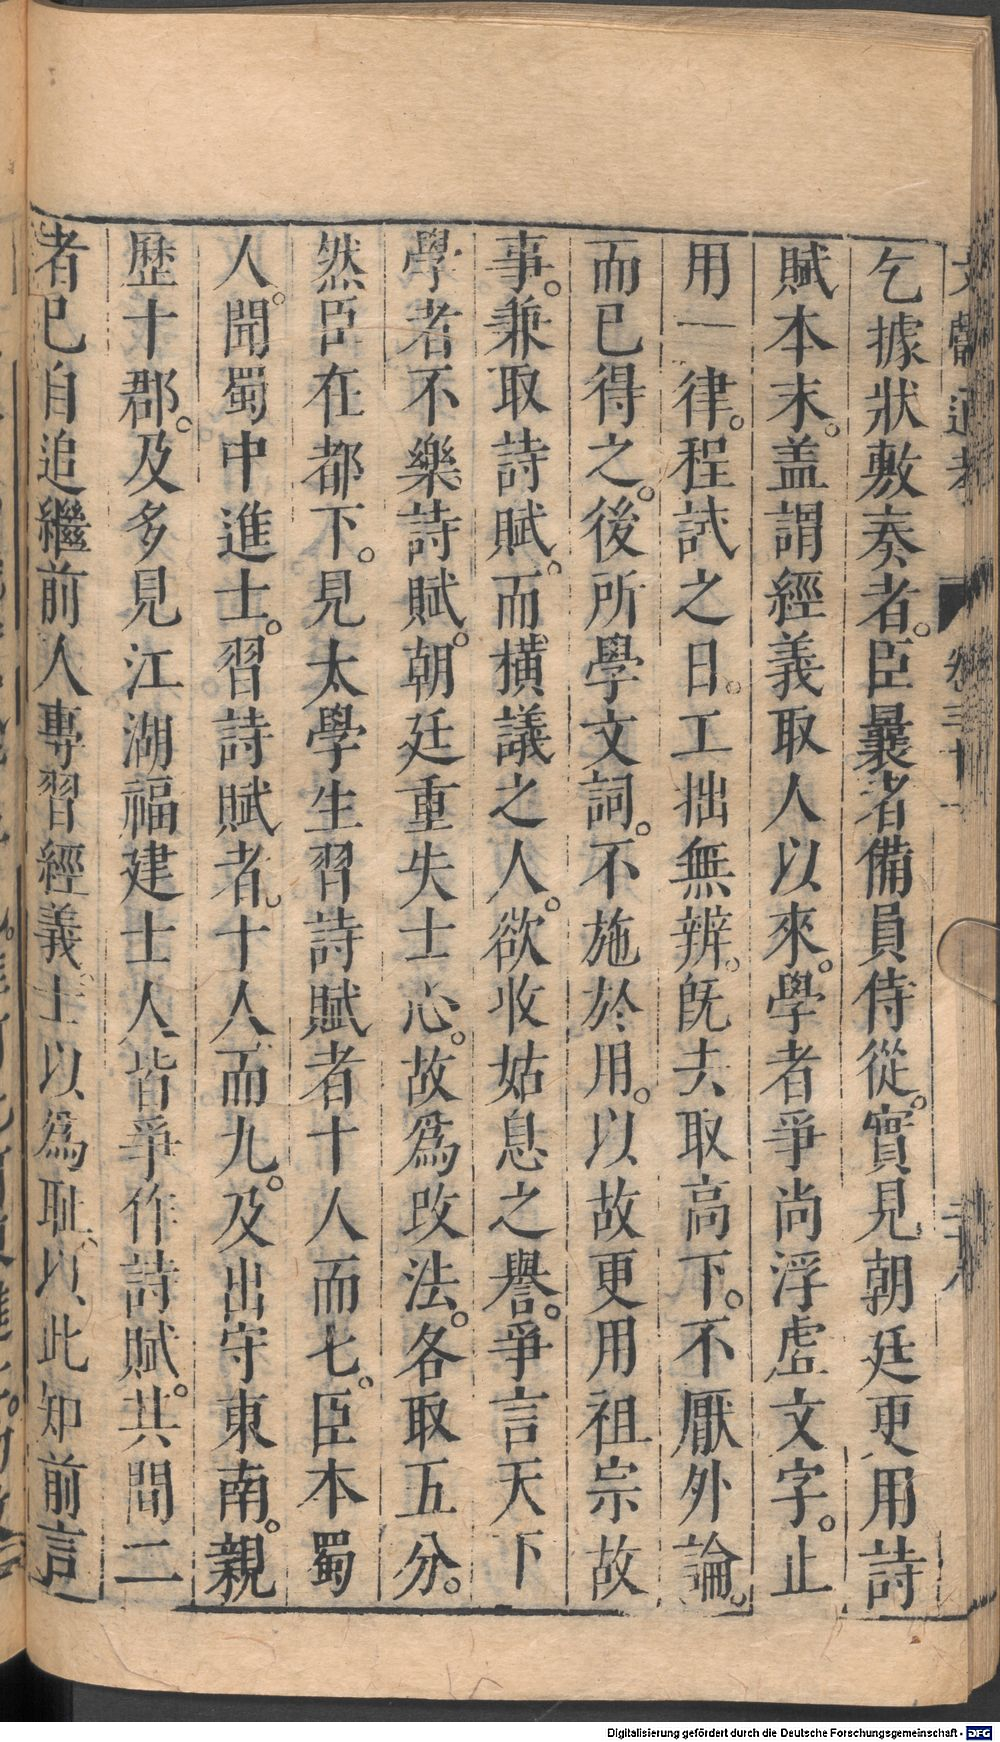 乞據狀敷奏者。臣曩者備員侍從。實見朝廷更用詩
賦本末。盖謂經義取人以來。學者爭尚浮虛文字。止
用一律。程試之日。工拙無辨。旣去取高下。不厭外論。
而已得之。後所學文詞。不施於用。以故更用祖宗故
事。兼取詩賦。而橫議之人。欲收姑息之譽。爭言天下
學者不樂詩賦。朝廷重失士心。故爲攺法。各取五分。
然臣在都下。見太學生習詩賦者十人而七。臣本蜀
人。聞蜀中進士。習詩賦者。十人而九。及出守東南。親
歷十郡。及多見江湖福建士人皆爭作詩賦。其間二
者已自追繼前人專習經義。士以爲耻。以此知前言
文獻通考 卷三十一 三十八
Digitalisierung gefördert durch die Deutsche Forschungsgemeinschaft - DFG